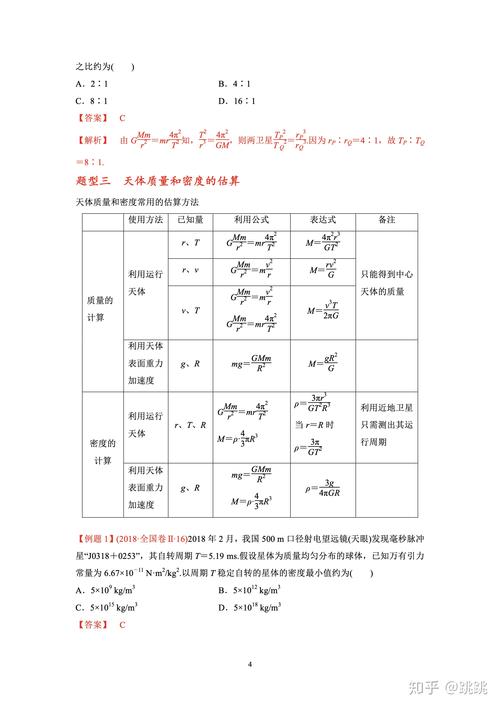 之比约为(　　)
A．2∶1　　B．4∶1
C．8∶1　　D．16∶1
【答案】　C
【解析】　由G\frac{Mm}{r^2}=mr\frac{4π^2}{T^2}知，\frac{T^2}{r^3}=\frac{4π^2}{GM}，则两卫星\frac{T_P^2}{T_Q^2}=\frac{r_P^3}{r_Q^3}.因为r_P∶r_Q=4∶1，故T_P∶T_Q
=8∶1.
题型三　天体质量和密度的估算
天体质量和密度常用的估算方法
使用方法　已知量　利用公式　表达式　备注
质量的计算
利用运行天体
r、T　G\frac{Mm}{r^2}=mr\frac{4π^2}{T^2}　M=\frac{4π^2r^3}{GT^2}
r、v　G\frac{Mm}{r^2}=m\frac{v^2}{r}　M=\frac{rv^2}{G}
v、T　G\frac{Mm}{r^2}=m\frac{v^2}{r}
G\frac{Mm}{r^2}=mr\frac{4π^2}{T^2}　M=\frac{v^3T}{2πG}
只能得到中心
天体的质量
利用天体
表面重力
加速度
g、R　mg=\frac{GMm}{R^2}　M=\frac{gR^2}{G}
密度的
计算
利用运行
天体
r、T、R　G\frac{Mm}{r^2}=mr\frac{4π^2}{T^2}
M=ρ·\frac{4}{3}πR^3
ρ=\frac{3πr^3}{GT^2R^3}
当r=R时
ρ=\frac{3π}{GT^2}
利用近地卫星
只需测出其运
行周期
利用天体
表面重力
加速度
g、R　mg=\frac{GMm}{R^2}
M=ρ·\frac{4}{3}πR^3
ρ=\frac{3g}{4πGR}
【例题1】(2018·全国卷Ⅱ·16)2018年2月，我国500 m口径射电望远镜(天眼)发现毫秒脉冲
星“J0318＋0253”，其自转周期T＝5.19 ms.假设星体为质量均匀分布的球体，已知万有引力
常量为6.67×10^{－11} N·m^2/kg^2.以周期T稳定自转的星体的密度最小值约为(　　)
A．5×10^9 kg/m^3　　B．5×10^{12} kg/m^3
C．5×10^{15} kg/m^3　　D．5×10^{18} kg/m^3
【答案】　C
4
知乎 @跳跳